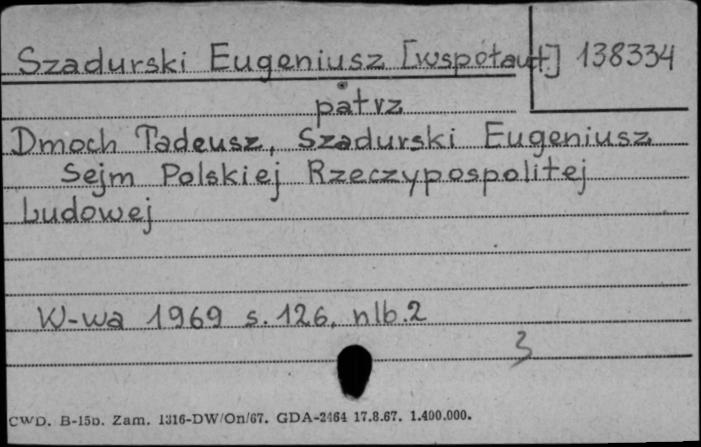 Szadurski Eugeniusz [współaut] 138334
patrz
Dmoch Tadeusz, Szadurski Eugeniusz
Sejm Polskiej Rzeczypospolitej
Ludowej
W-wa 1969 s. 126, nlb. 2
3
CWD. B-15b. Zam. 1316-DW/On/67. GDA-2464 17.8.67. 1.400.000.